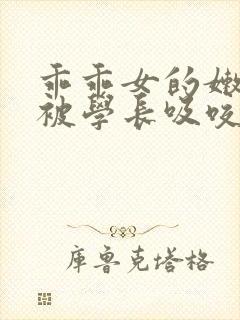 乖乖女的嫩
被學長吸咬
庫魯克塔格